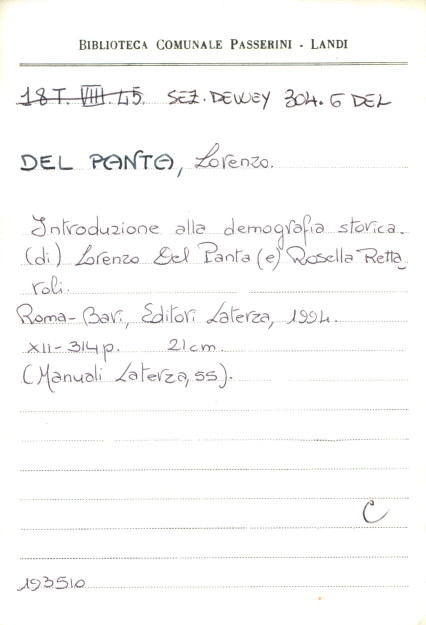 BIBLIOTECA COMUNALE PASSERINI - LANDI
18T. VIII. 45. SEZ. DEWEY 304.6 DEL
DEL PANTA, Lorenzo.
Introduzione alla demografia storica.
(di) Lorenzo Del Panta (e) Rosella Retta
roli.
Roma-Bari, Editori Laterza, 1994.
XII-314 p. 21 cm.
(Manuali Laterza, 55).
C
193510